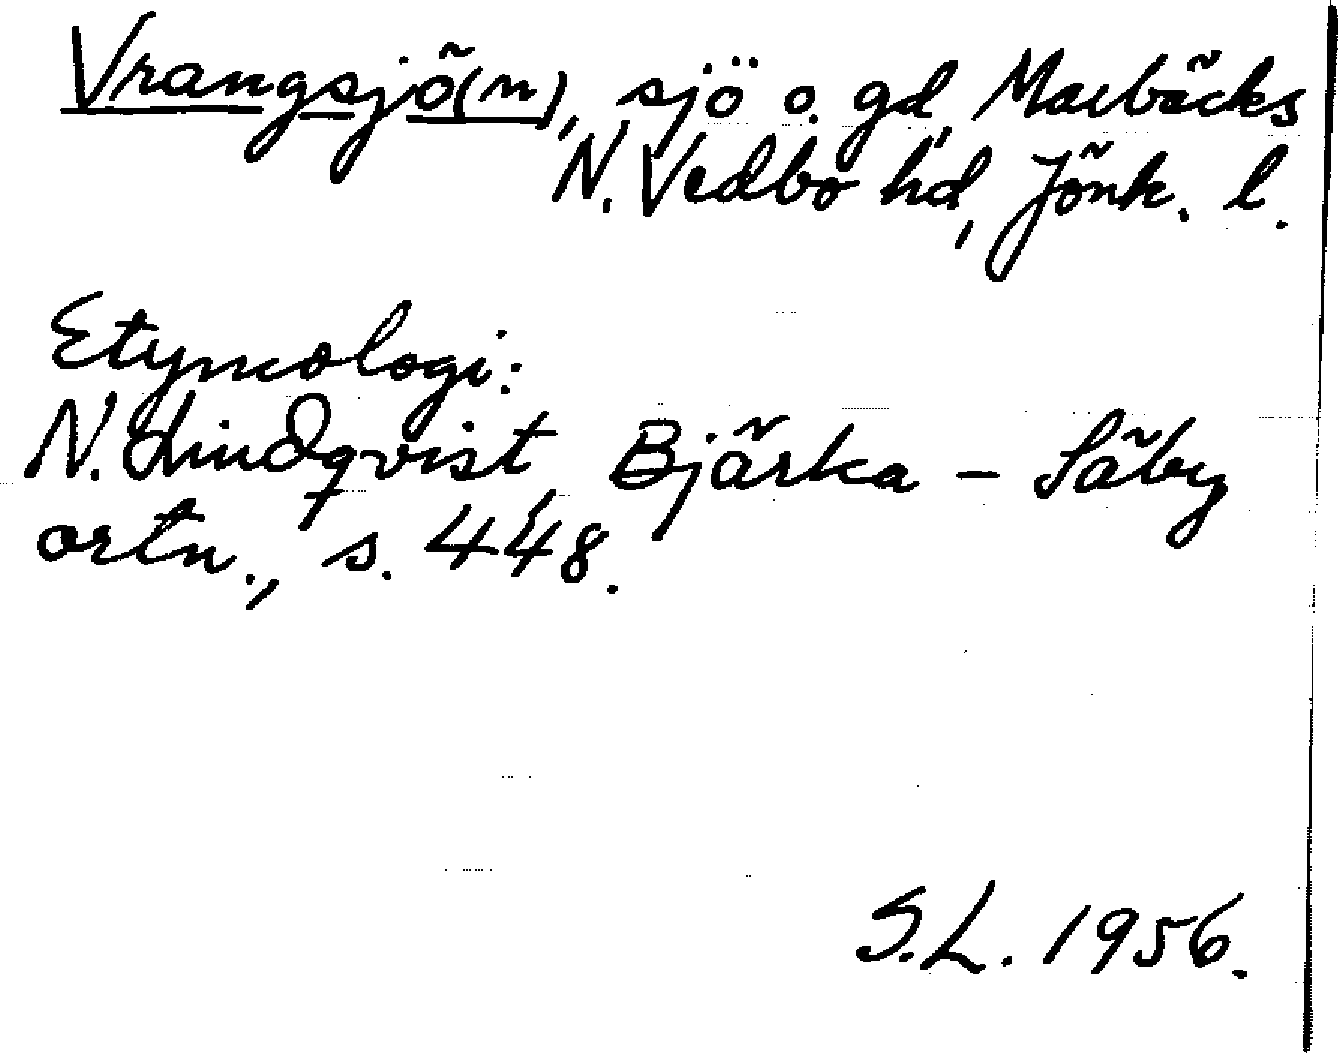 Vrangsjö(n), sjö o. gd, Marbäcks
N. Vedbo hd, Jönk. l.
Etymologi:
N. Lindqvist Bjärka – Säby
ortn., s. 448.
S.L. 1956.